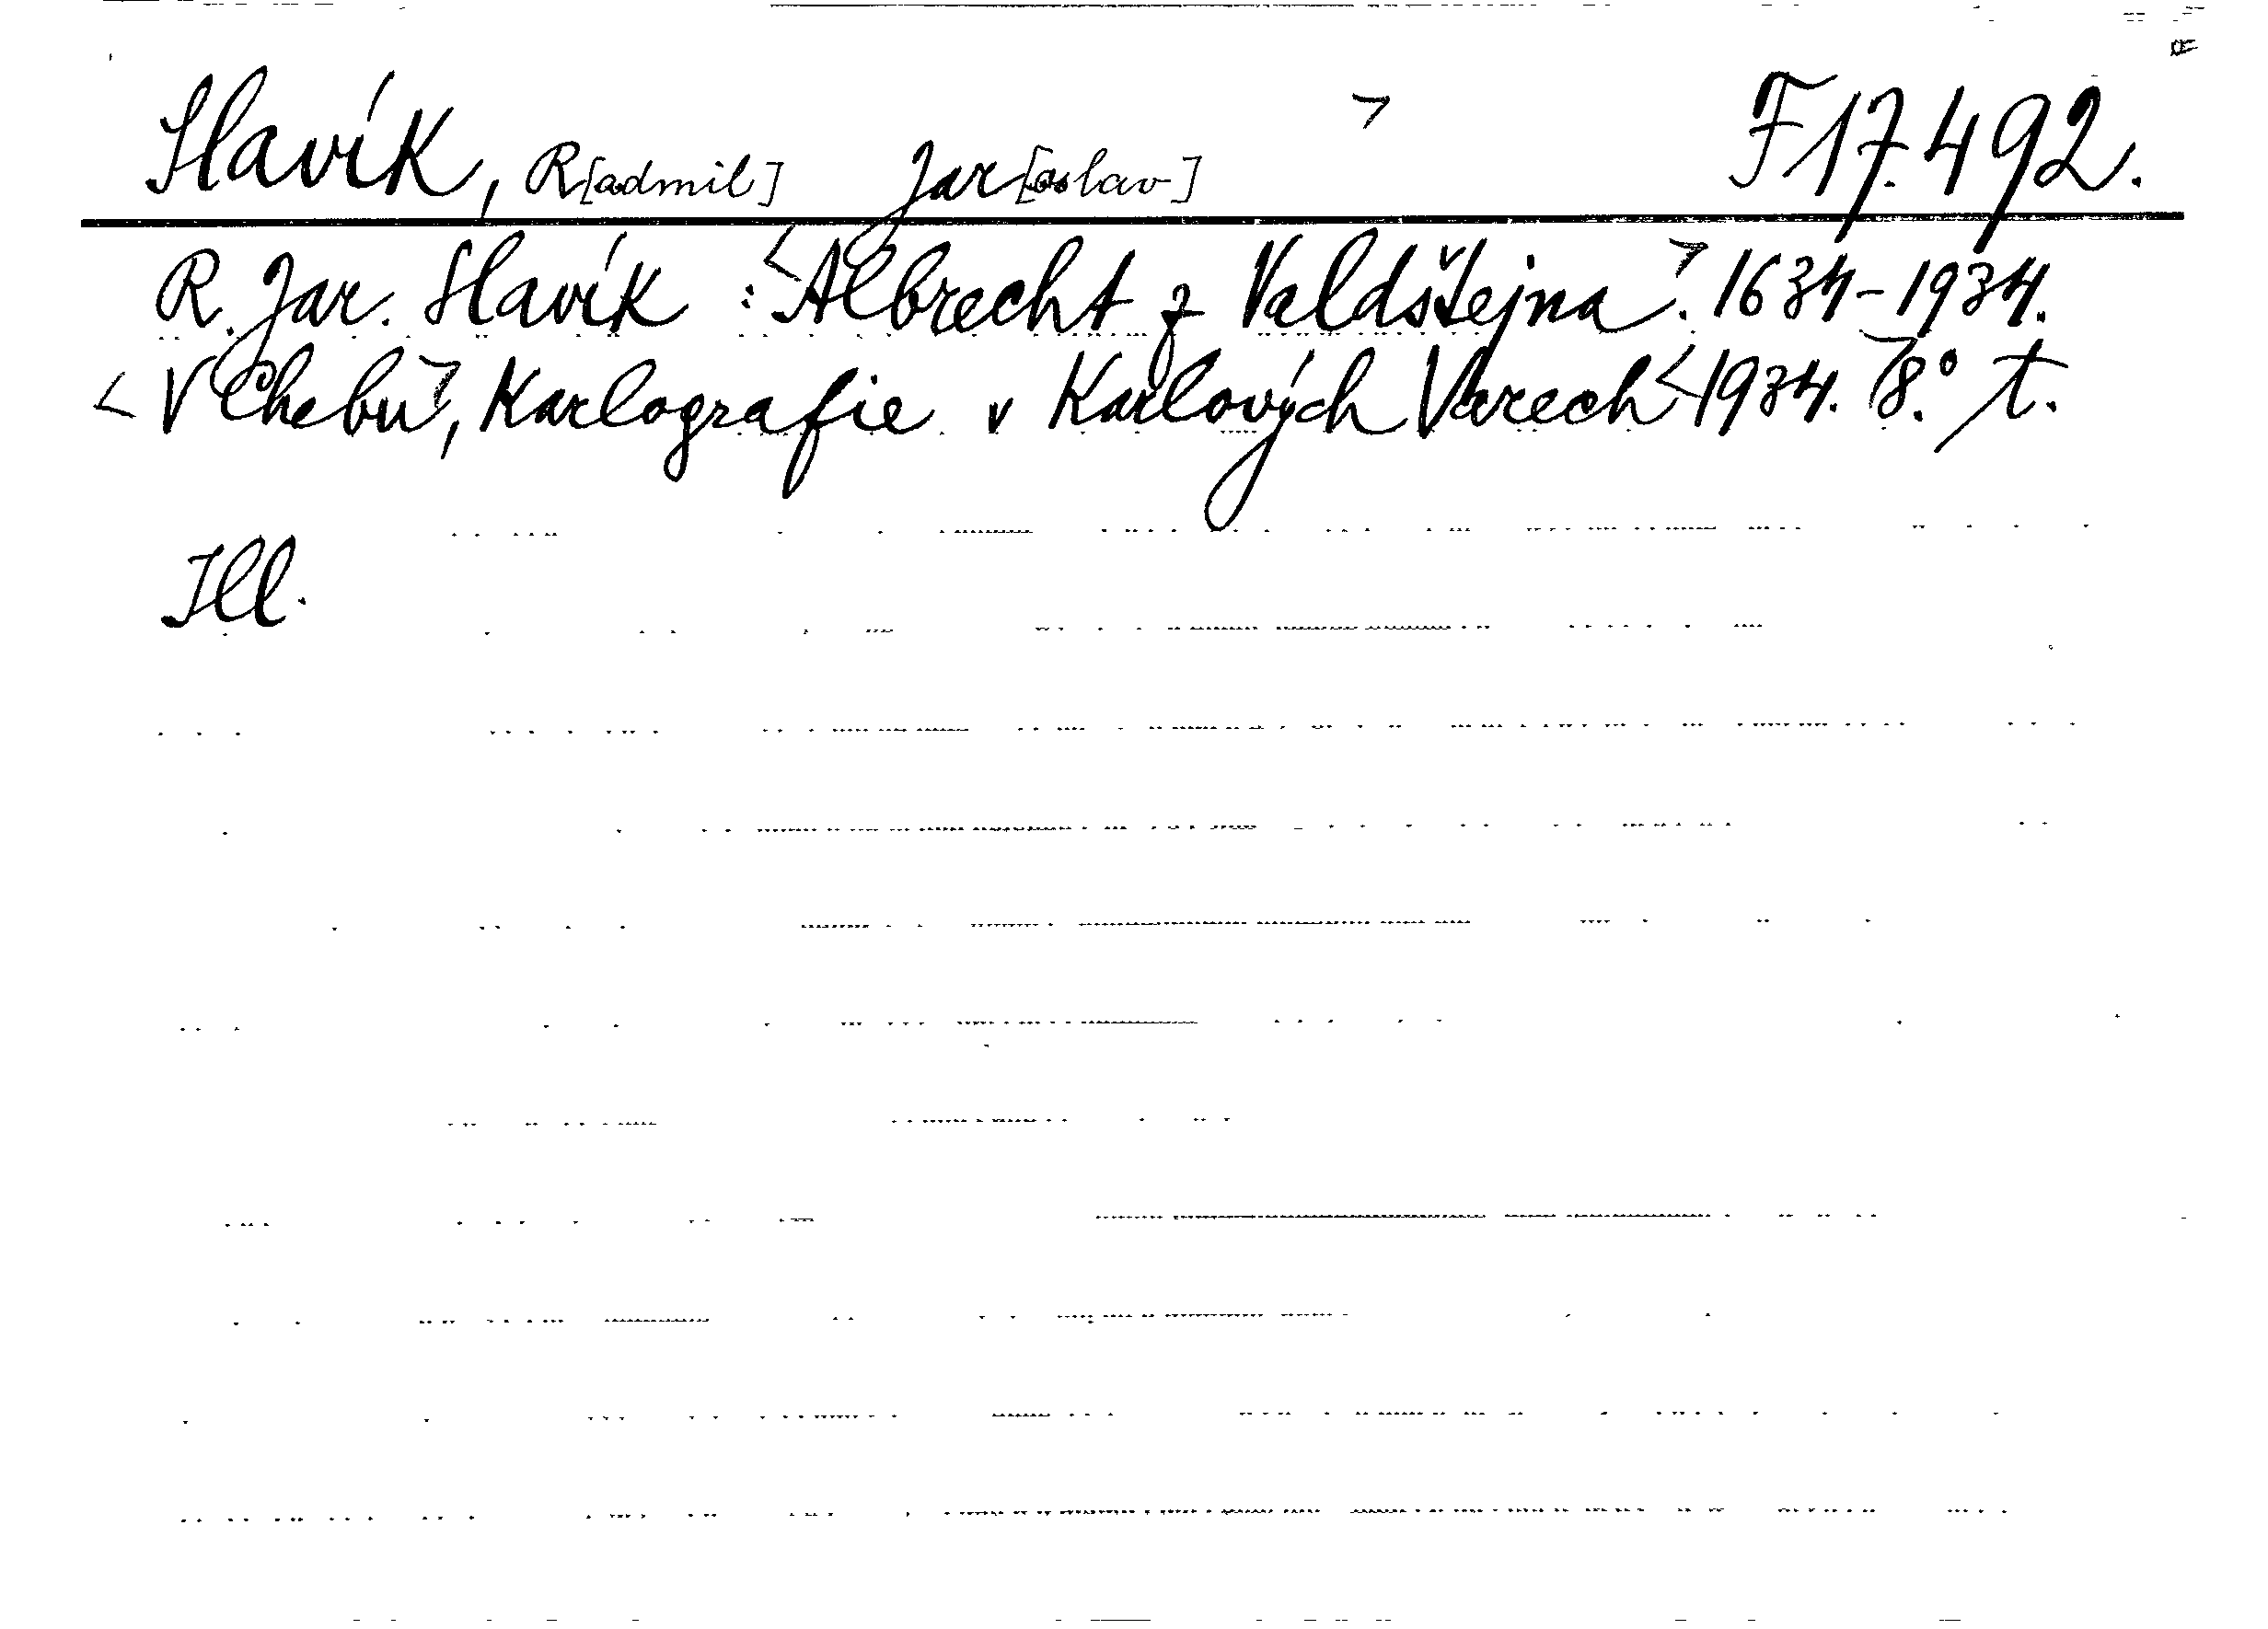 Slavík, R[admil] Jar[oslav] > F 17.492.
R. Jar. Slavík : <Albrecht z Valdštejna>. 1634-1934.
<V Chebu>, Karlografie v Karlových Varech <1934.> 8.° t.
Ill.